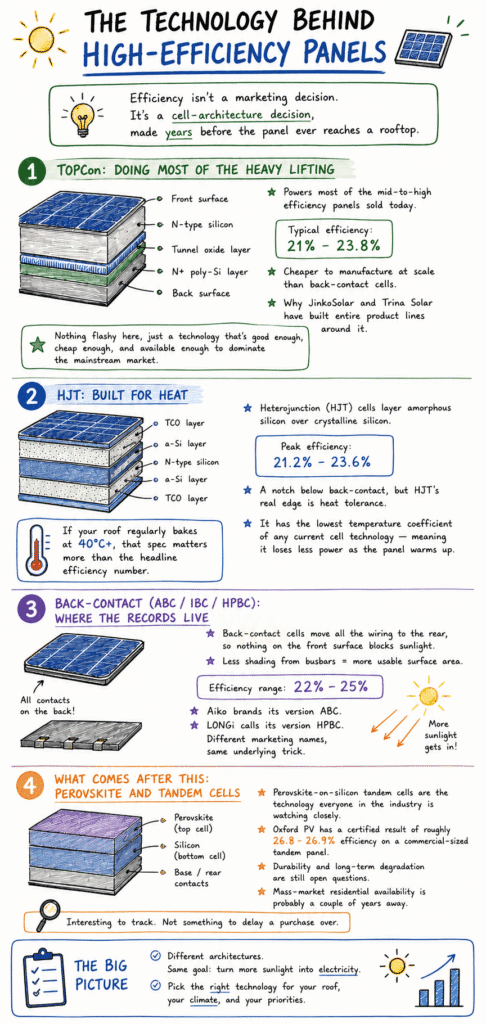 THE TECHNOLOGY BEHIND
HIGH-EFFICIENCY PANELS
Efficiency isn't a marketing decision.
It's a cell-architecture decision,
made years before the panel ever reaches a rooftop.
1 TOPCon: DOING MOST OF THE HEAVY LIFTING
Front surface
N-type silicon
Tunnel oxide layer
N+ poly-Si layer
Back surface
Powers most of the mid-to-high
efficiency panels sold today.
Typical efficiency:
21% – 23.8%
Cheaper to manufacture at scale
than back-contact cells.
Why JinkoSolar and Trina Solar
have built entire product lines
around it.
Nothing flashy here, just a technology that's good enough,
cheap enough, and available enough to dominate
the mainstream market.
2 HJT: BUILT FOR HEAT
TCO layer
a-Si layer
N-type silicon
a-Si layer
TCO layer
If your roof regularly bakes
at 40°C+, that spec matters
more than the headline
efficiency number.
Heterojunction (HJT) cells layer amorphous
silicon over crystalline silicon.
Peak efficiency:
21.2% – 23.6%
A notch below back-contact, but HJT's
real edge is heat tolerance.
It has the lowest temperature coefficient
of any current cell technology — meaning
it loses less power as the panel warms up.
3 BACK-CONTACT (ABC / IBC / HPBC):
WHERE THE RECORDS LIVE
All contacts
on the back!
Back-contact cells move all the wiring to the rear,
so nothing on the front surface blocks sunlight.
Less shading from busbars = more usable surface area.
Efficiency range: 22% – 25%
Aiko brands its version ABC.
LONGi calls its version HPBC.
Different marketing names,
same underlying trick.
More
sunlight
gets in!
4 WHAT COMES AFTER THIS:
PEROVSKITE AND TANDEM CELLS
Perovskite
(top cell)
Silicon
(bottom cell)
Base / rear
contacts
Perovskite-on-silicon tandem cells are the
technology everyone in the industry is
watching closely.
Oxford PV has a certified result of roughly
26.8 – 26.9% efficiency on a commercial-sized
tandem panel.
Durability and long-term degradation
are still open questions.
Mass-market residential availability is
probably a couple of years away.
Interesting to track. Not something to delay a purchase over.
THE BIG
PICTURE
Different architectures.
Same goal: turn more sunlight into electricity.
Pick the right technology for your roof,
your climate, and your priorities.